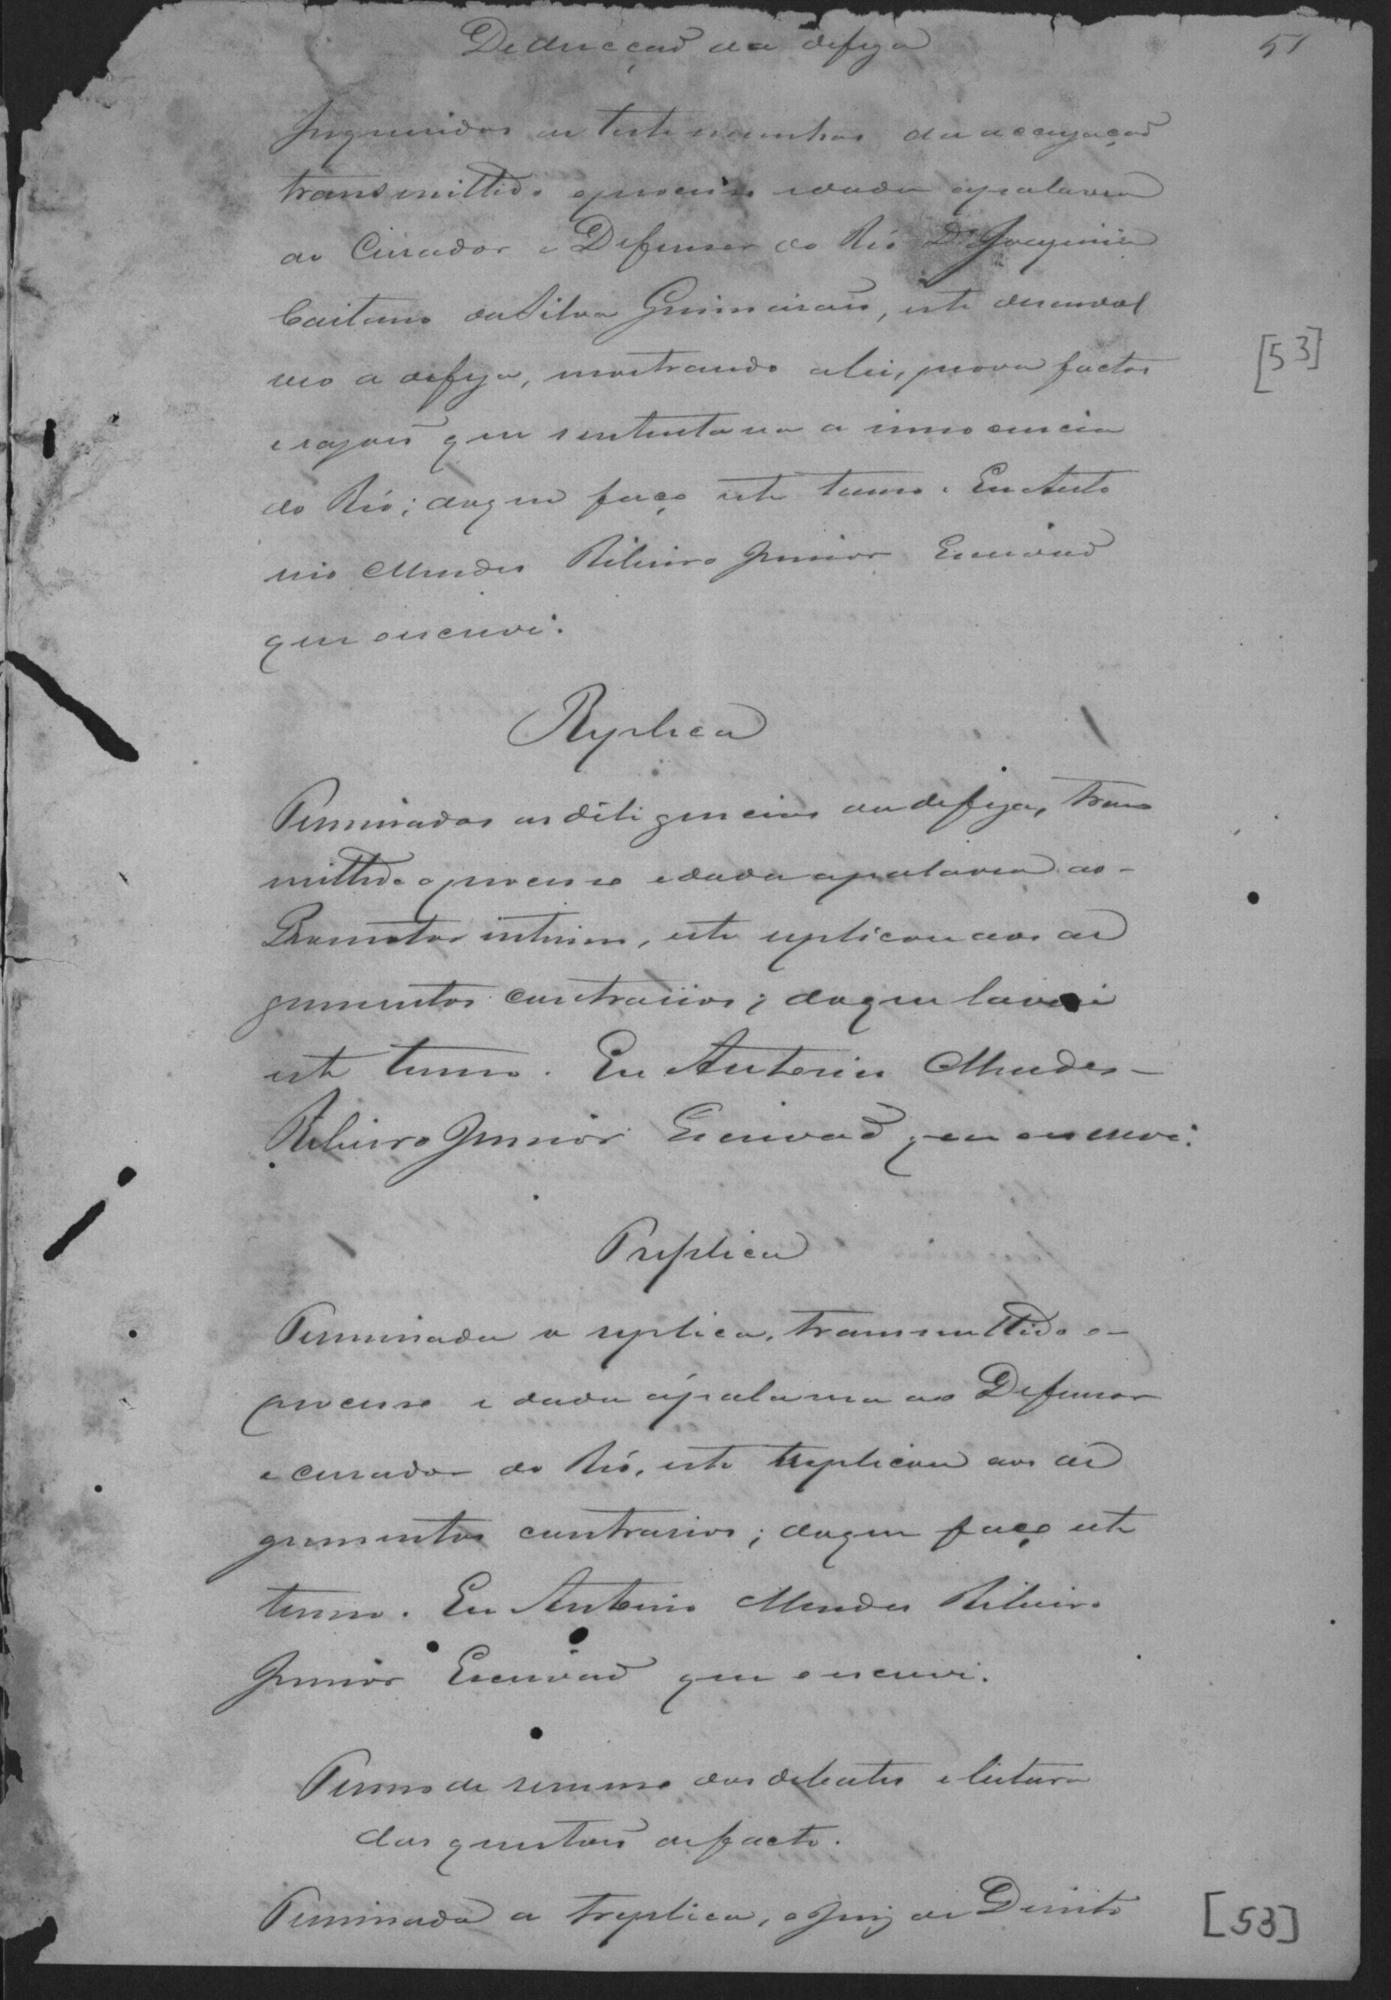 Deducção da defeza
51
Inqueridas as testemunhas da accuzação
transmittido o processo e dada apalavra
ao Curador e Defensor do Réo Dr Joaquim
Caitano da Silva Guimarães, este desenvol
veo a defeza, mostrando a lei, provas factos
[53]
e razões que sustentava a innocencia
do Réo; do que faço este termo. Eu Anto
nio Mendes Ribeiro Junior Escrivão
que escrevi.
Replica
Terminadas as diligencias da defeza, trans
mittido o processo e dada apalavra ao
Promotor interino, este replicou aos ar
gumentos contrarios; do que lavrei
este termo. Eu Antonio Mendes
Ribeiro Junior Escrivão que escrevi.
Treplica
Terminada a replica, transmittido o
processo e dada apalavra ao Defensor
e curador do Réo, este treplicou aos ar
gumentos contrarios; do que faço este
termo. Eu Antonio Mendes Ribeiro
Junior Escrivão que escrevi.
Termo de resumo dos debates e leitura
das questões de facto.
Terminada a treplica, o Juiz de Direito
[53]